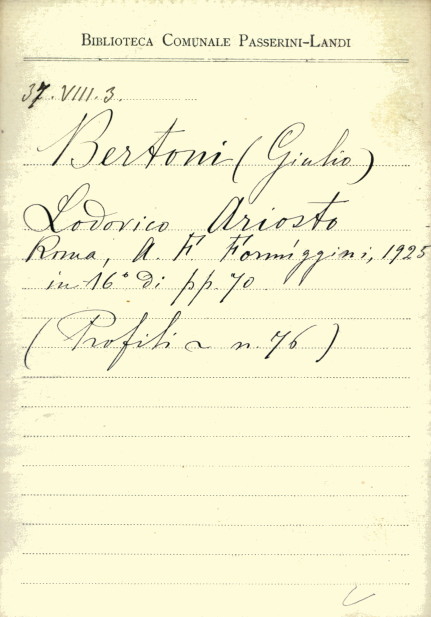 BIBLIOTECA COMUNALE PASSERINI-LANDI
37.VIII.3.
Bertoni (Giulio)
Lodovico Ariosto
Roma, A. F. Formiggini, 1925
in 16° di pp. 70.
(Profili ~ n. 76)